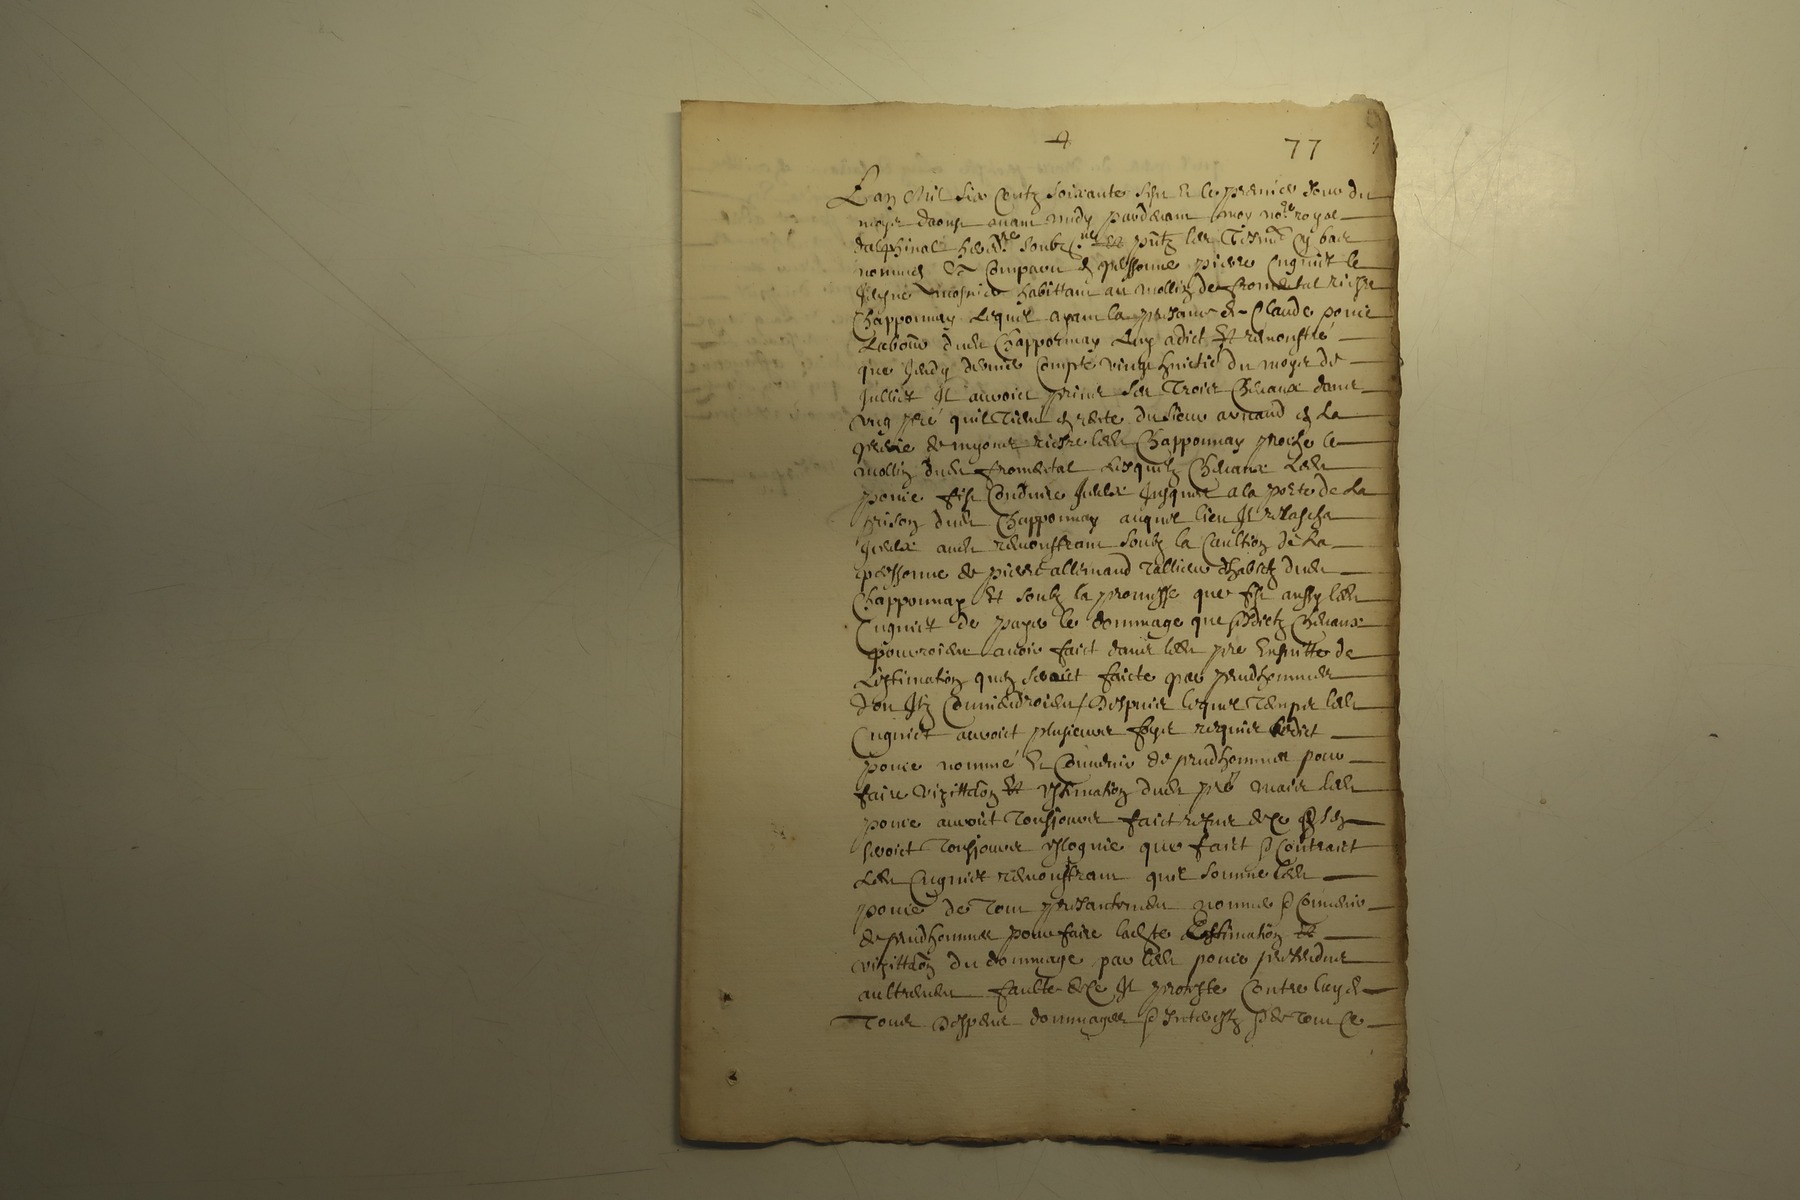 77
Lan Mil Six Centz Soixante Sept Et le premier Jour du
moys daoust avant midy pardevant moy no.re royal
dalphinal soubz.né Et pntz les Tesmz cy bas
nommez Compareu en personne pierre Cugniet le
Jeusne mosnier habittant au mollin de fromental riere
Chapponnay Lequel ayant la presance de Claude ponce
Labour dudt Chapponnay Luy a dict Et remonstré
que Jeudy dernier Compté vingt huictie du moys de
Juilliet Il auroict prins ses Trois Chevaux dans
ung pré quil Tient en rente du sieur arnaud en La
prerie de riere ledt Chapponnay proche le
mollin dudt fromental Lesquelz Chevaux Ledt
ponce fist Conduire Jceux Jusques a la porte de La
prison dudt Chapponnay auquel lieu Il relascha
Jceux audt remonstrant soubz la Caultion de La
personne de pierre allemand habitt dudt
Chapponnay Et soubz la promesse que fist aussy ledt
Cugniet de payer le dommage que sesdictz Chevaux
pourroient avoir faict dans ledt pré Ensuitte de
Lestimation quen seroict faicte par prudhommes
don Ilz Conviendroient / Despuis lequel Temps ledt
Cugniet auroict plusieurs foys requis ledict
ponce nommé Et Convenir de prudhommes pour
faire vizittaon Et Estimation dudt pré mais ledt
ponce auroict Tousjours faict refus de Ce
seroict Tousjours que faict
Ledt Cugniet remonstrant quil somme ledt
ponce de Tout presantement nommer & Convenir
de prudhommes pour faire ladte Estimation Et
vizittaon du dommage par ledt ponce prethendue
aultrement faulte de Ce Il proteste Contre luy de
Tous Despens dommages & Interestz & de Tout Ce